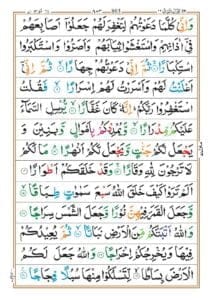 وَاِنِّىۡ كُلَّمَا دَعَوۡتُهُمۡ لِتَغۡفِرَ لَهُمۡ جَعَلُوۡۤا اَصَابِعَهُمۡ
فِىۡۤ اٰذَانِهِمۡ وَاسۡتَغۡشَوۡا ثِيَابَهُمۡ وَاَصَرُّوۡا وَاسۡتَكۡبَرُوا
اسۡتِكۡبَارًا‌ ثُمَّ اِنِّىۡ دَعَوۡتُهُمۡ جِهَارًا ثُمَّ اِنِّىۡۤ
اَعۡلَنۡتُ لَهُمۡ وَاَسۡرَرۡتُ لَهُمۡ اِسۡرَارًا فَقُلۡتُ
اسۡتَغۡفِرُوۡا رَبَّكُمۡ اِنَّهٗ كَانَ غَفَّارًا يُّرۡسِلِ السَّمَآءَ
عَلَيۡكُمۡ مِّدۡرَارًا وَّيُمۡدِدۡكُمۡ بِاَمۡوَالٍ وَّبَنِيۡنَ وَ
يَجۡعَلۡ لَّكُمۡ جَنّٰتٍ وَّيَجۡعَلۡ لَّكُمۡ اَنۡهٰرًا مَا لَكُمۡ
لَا تَرۡجُوۡنَ لِلّٰهِ وَقَارًا‌ وَقَدۡ خَلَقَكُمۡ اَطۡوَارًا
اَلَمۡ تَرَوۡا كَيۡفَ خَلَقَ اللّٰهُ سَبۡعَ سَمٰوٰتٍ طِبَاقًا
وَّجَعَلَ الۡقَمَرَ فِيۡهِنَّ نُوۡرًا وَّجَعَلَ الشَّمۡسَ سِرَاجًا
وَاللّٰهُ اَنۡۢبَتَكُمۡ مِّنَ الۡاَرۡضِ نَبَاتًا ثُمَّ يُعِيۡدُكُمۡ
فِيۡهَا وَيُخۡرِجُكُمۡ اِخۡرَاجًا وَاللّٰهُ جَعَلَ لَكُمُ
الۡاَرۡضَ بِسَاطًا لِّتَسۡلُكُوۡا مِنۡهَا سُبُلًا فِجَاجًا